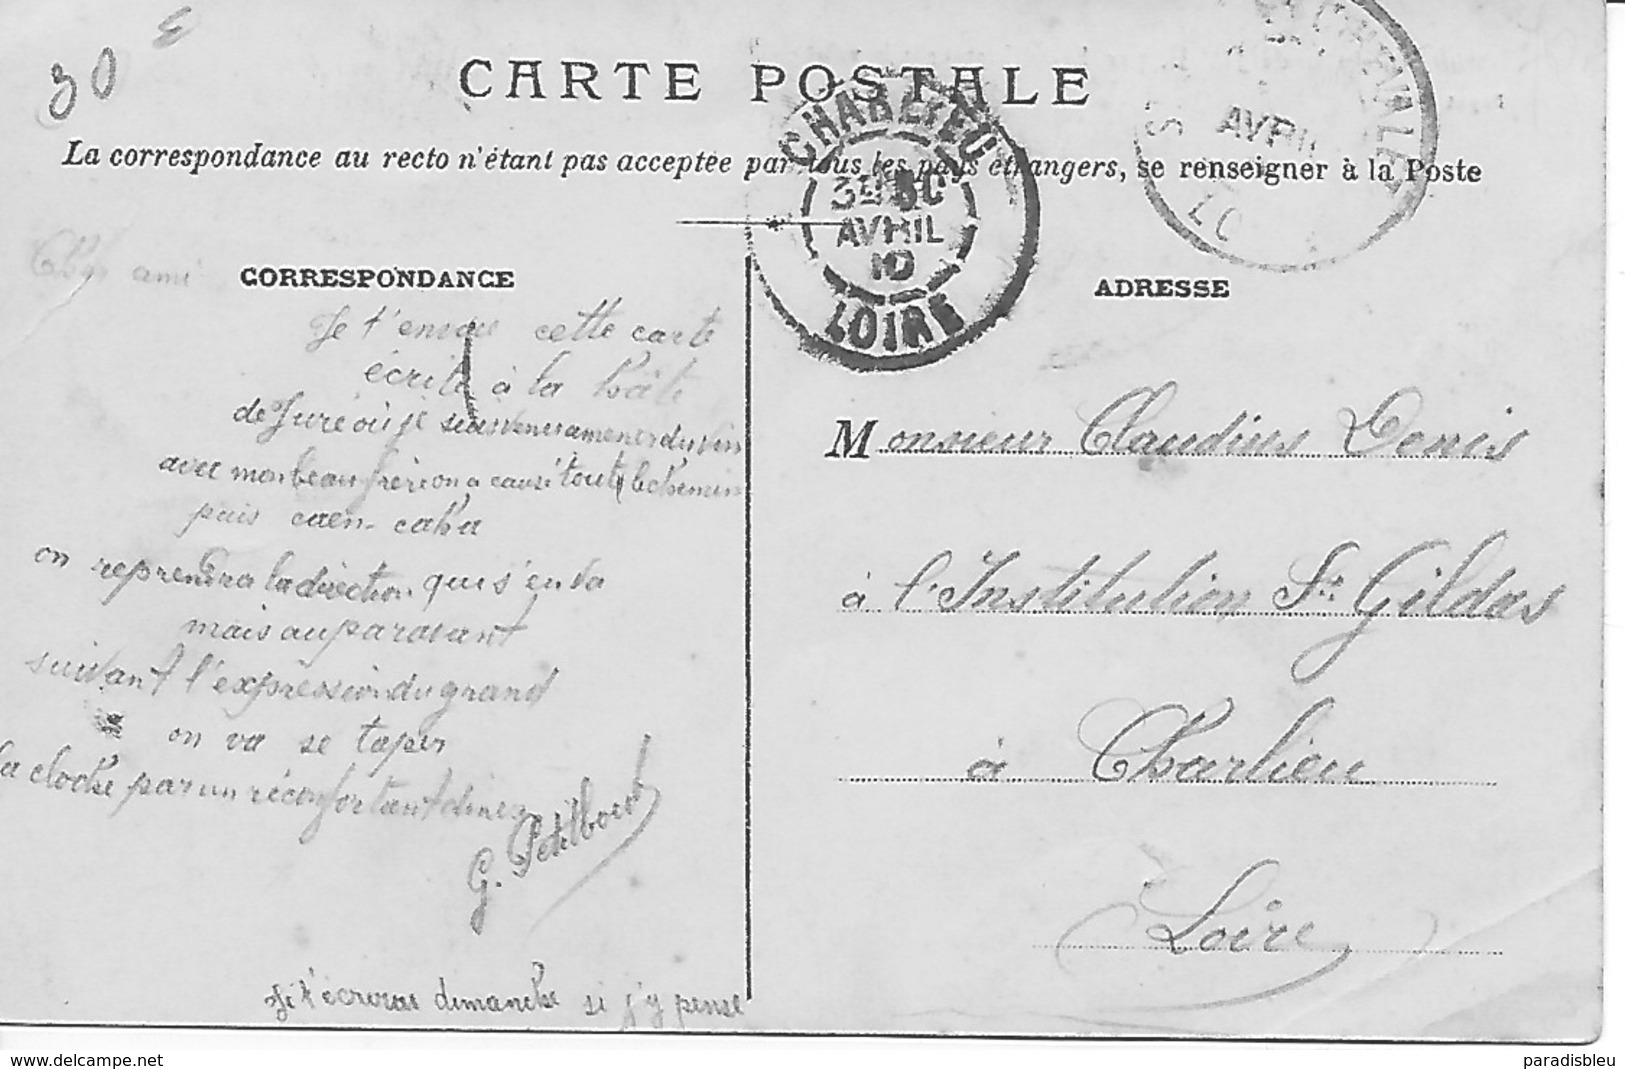 30 €
CARTE POSTALE
La correspondance au recto n'étant pas acceptée par tous les pays étrangers, se renseigner à la Poste
CHARLIEU
AVRIL
10
LOIRE
AVRIL
CORRESPONDANCE
ADRESSE
Cher ami
Je t'envoie cette carte
écrite à la hâte
de Juré où je suis venu amener du vin
avec mon beau frère on a causé tout le chemin
puis caen-caha
on reprendra la direction qui s'en va
mais auparavant
suivant l'expression du grand
on va se taper
la cloche par un réconfortant diner
G. Petitbout
Je t'écrirai dimanche si j'y pense
Monsieur Claudius Denis
à l'Institution St Gildas
à Charlieu
Loire
www.delcampe.net
paradisbleu